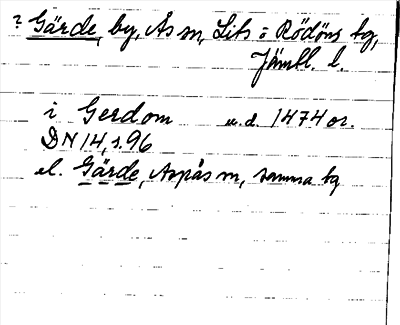 ? Gärde, by, Ås sn, Lits o Rödöns tg,
Jämtl. l.
i Gerdom u.d. 1474 or.
DN 14, s. 96
el. Gärde, Aspås sn, samma tg